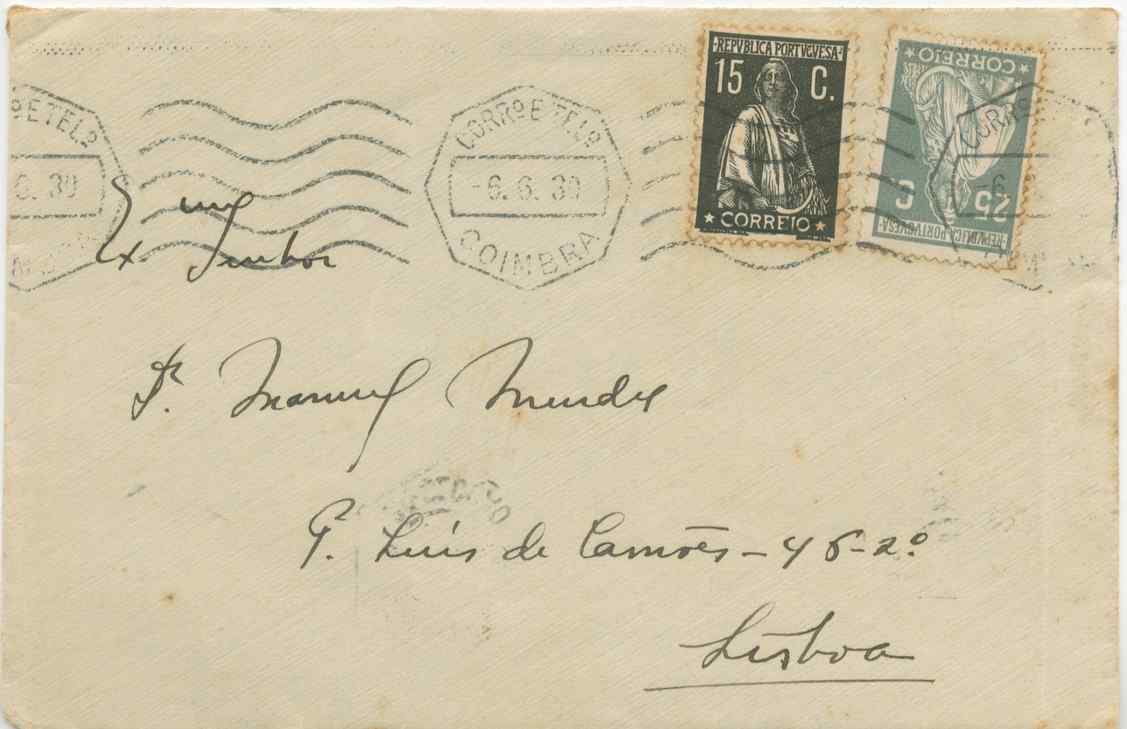 REPVBLICA PORTVGVESA
15 C.
CORREIO
CORREIO
25 C
REPVBLICA PORTVGVESA
CORRº E TELº
-6. 6. 30
COIMBRA
º E TELº
6. 30
CORRº
6
Exmº Senhor
Dr. Manuel Mendes
P. Luís de Camões - 46 - 2º
Lisboa